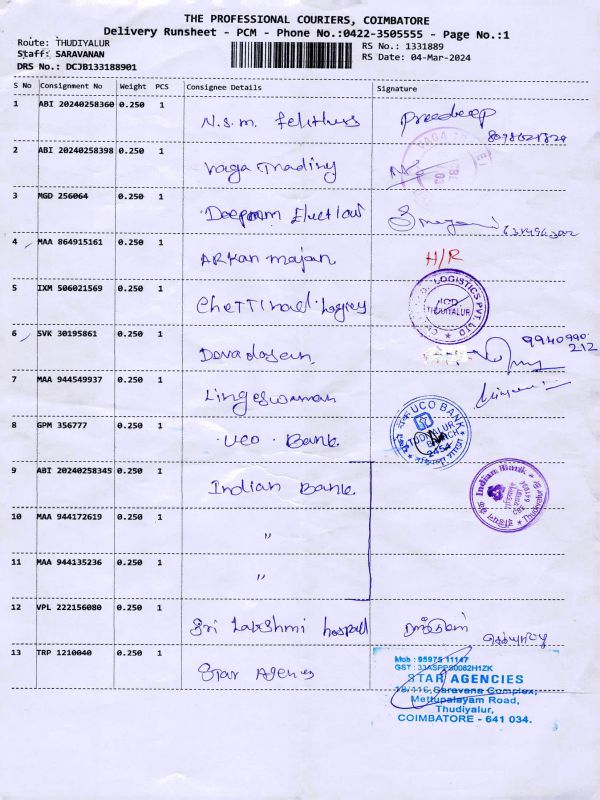 THE PROFESSIONAL COURIERS, COIMBATORE
Delivery Runsheet - PCM - Phone No.:0422-3505555 - Page No.:1
Route: THUDIYALUR
Staff: SARAVANAN
DRS No.: DCJB133188901
RS No.: 1331889
RS Date: 04-Mar-2024
S No Consignment No Weight PCS Consignee Details Signature
1 ABI 20240258360 0.250 1 N.S.M. Pradeep
2 ABI 20240258398 0.250 1 Vaga Trading
3 MGD 256064 0.250 1
4 MAA 864915161 0.250 1 Arkan majan H/R
5 IXM 506021569 0.250 1 Chettinad
LOGISTICS PVT. LTD.
ICD
THUDIYALUR
6 SVK 30195861 0.250 1 9940990
212
7 MAA 944549937 0.250 1 Lingeswaran
8 GPM 356777 0.250 1 UCO Bank
UCO BANK
BRANCH
2454
9 ABI 20240258345 0.250 1 Indian Bank
Indian Bank
Thudiyalur
10 MAA 944172619 0.250 1 "
11 MAA 944135236 0.250 1 "
12 VPL 222156080 0.250 1 Sri Lakshmi hospital
13 TRP 1210040 0.250 1 Star Agency
Mob : 95975 11147
GST : 33ASPPS0082H1ZK
STAR AGENCIES
18/116, Saravana Complex,
Mettupalayam Road,
Thudiyalur,
COIMBATORE - 641 034.